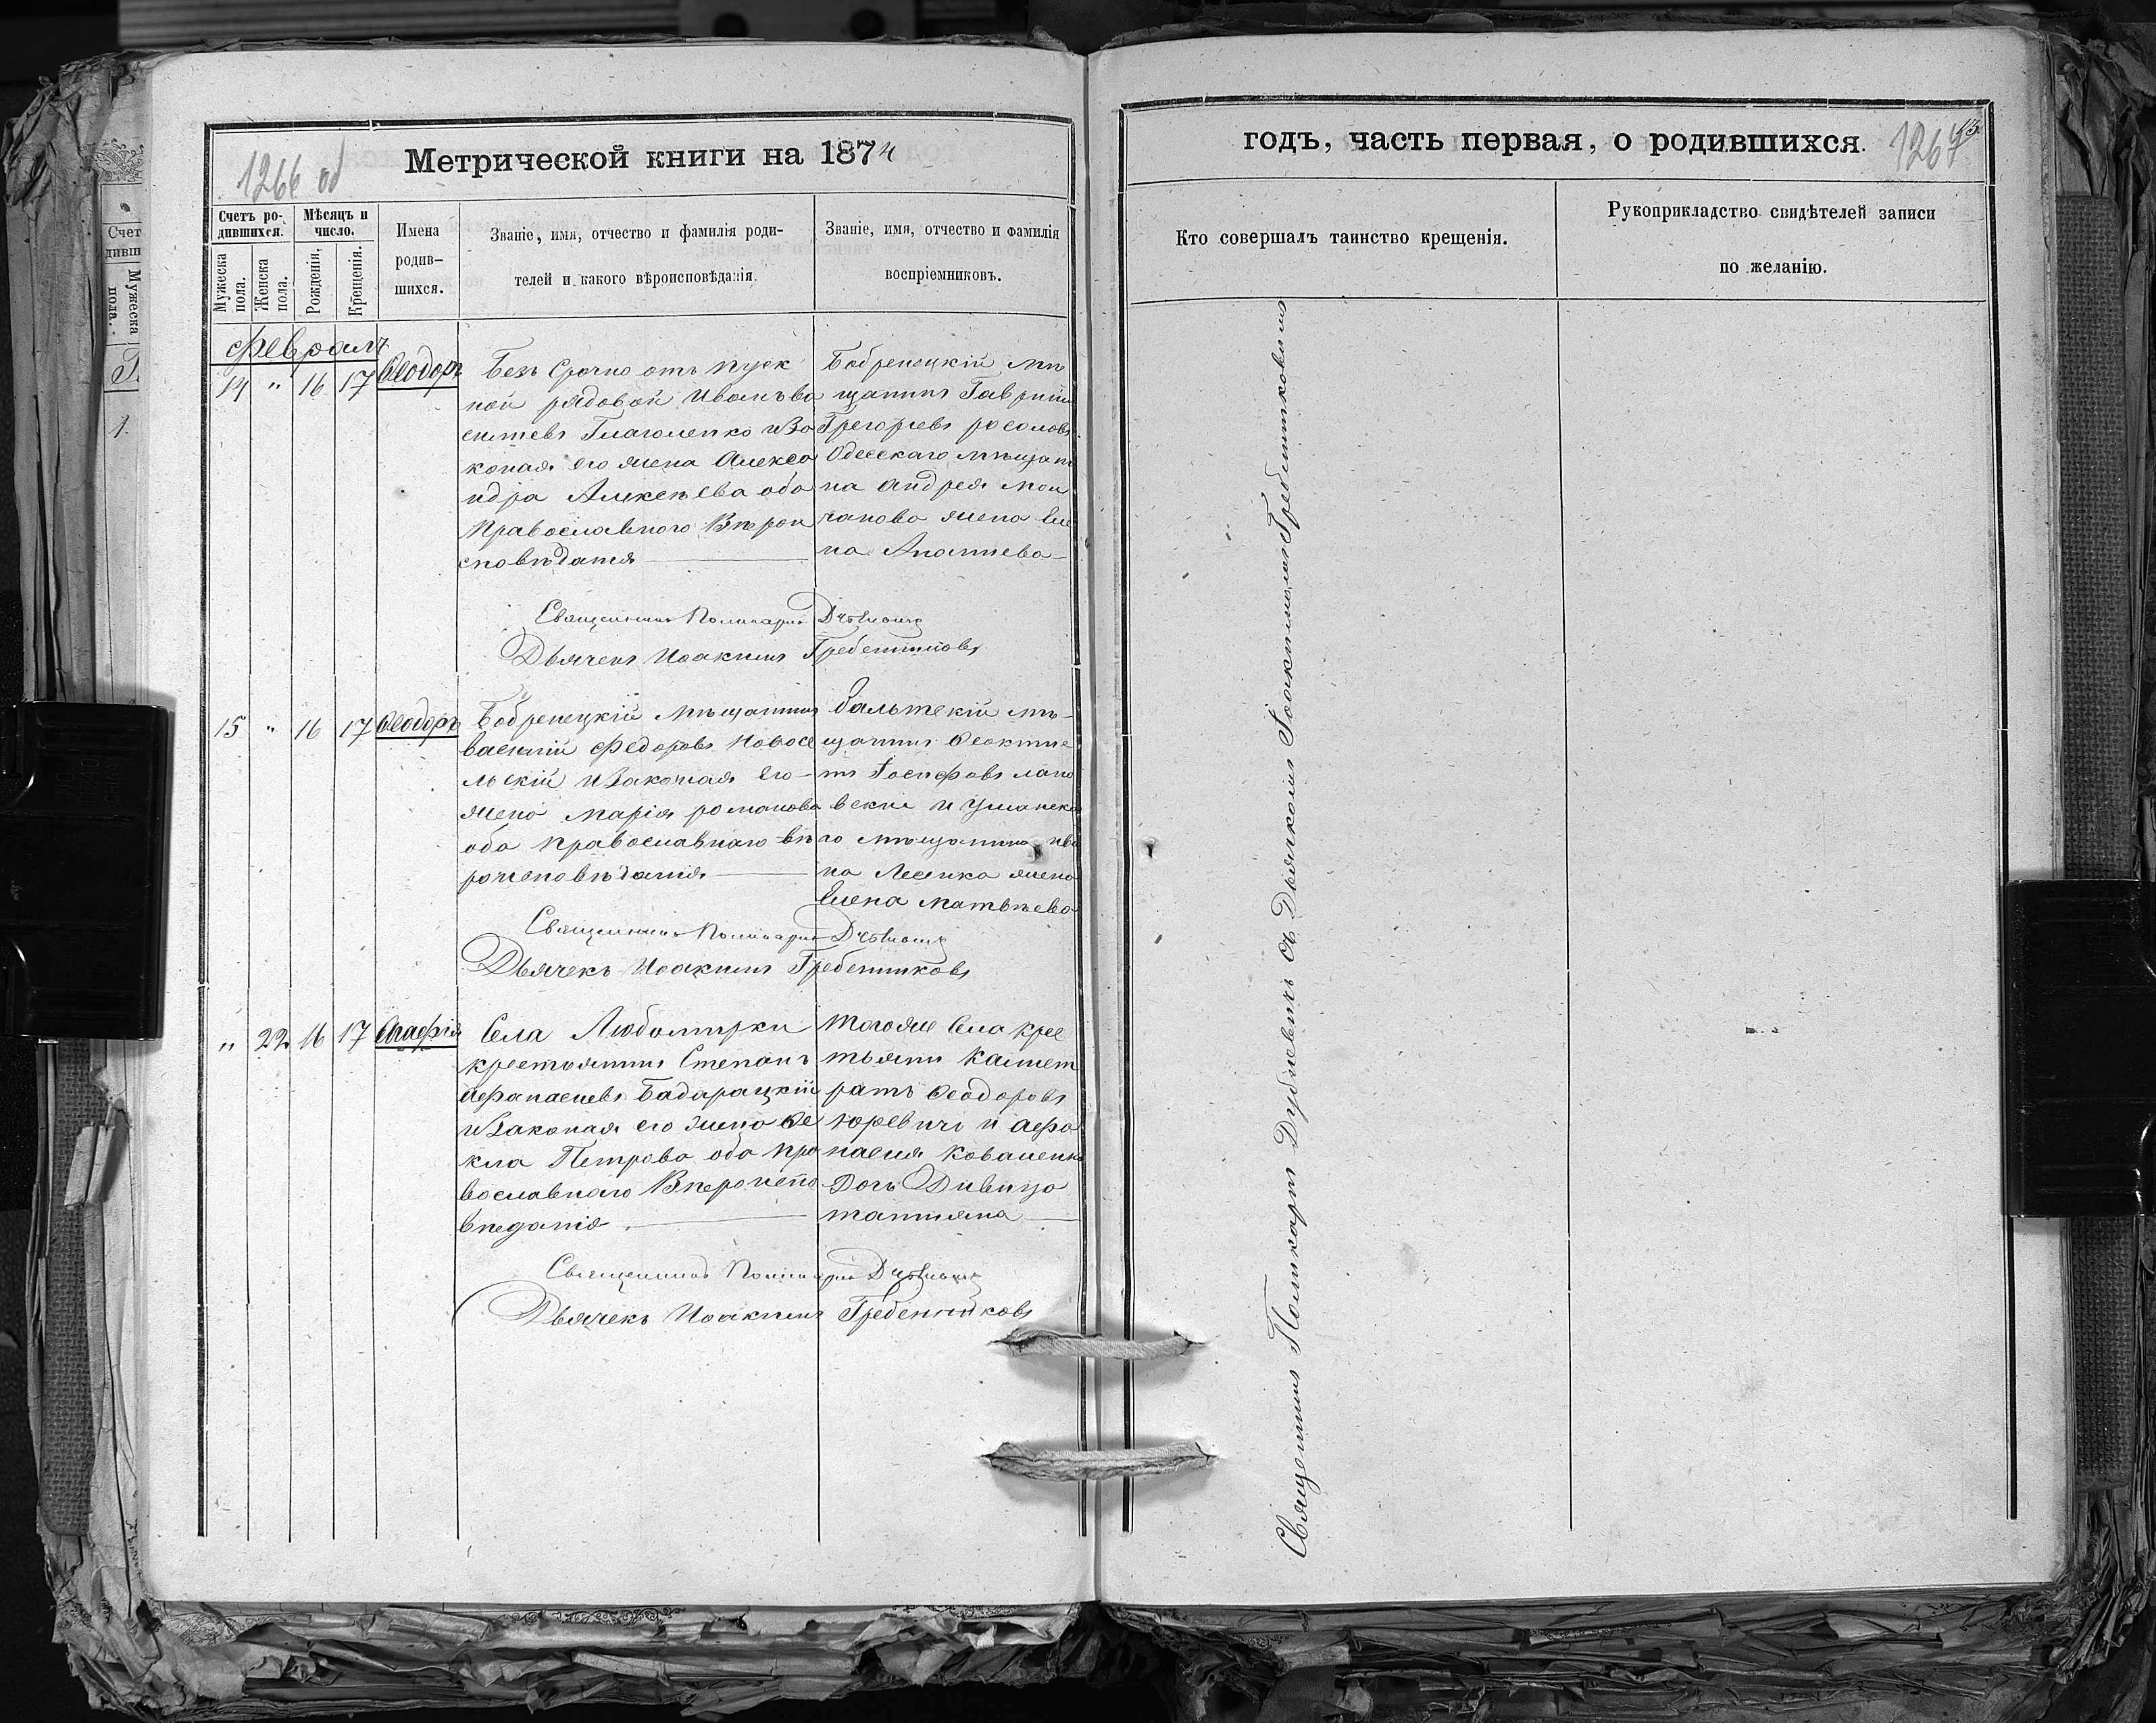 1266 об
Метрической книги на 1874
Счетъ ро-
дившихся.
Мѣсяцъ и
число.
Мужеска
пола.
Женска
пола.
Рожденія.
Крещенія.
Имена
родив-
шихся.
Званіе, имя, отчество и фамилія роди-
телей и какого вѣроисповѣданія.
Званіе, имя, отчество и фамилія
воспріемниковъ.
Февраль
14 " 16 17 Ѳеодоръ
Безъ Срочно отъ пуск
ной рядовой Иванъ ва
силіевъ Глаголенко и За
коная его жена Алекса
ндра Алексѣева оба
Православнаго Вѣрои
сповѣданія
Бобренецкій Мѣ
щанинъ Гавріилъ
Грегорьевъ
Одесскаго Мѣщани
на Андрея Мол
чанова жена Еле
на
Священникъ Поликарпъ
Дьячекъ Иоакимъ Гребенниковъ
15 " 16 17 Ѳеодоръ
Бобренецкій Мѣщанинъ
василій Федоровъ Новосе
льскій и Законая его
жена Марія романова
оба православнаго вѣ
роисповѣданія
Балтскій мѣ-
щанинъ Ѳеоктис
тъ Іосифовъ лано
вскій и Уманска
го мѣщанина ива
на Лесенка жена
Елена Матвѣева
Священникъ Поликарпъ
Дьячекъ Иоакимъ Гребенниковъ
" 22 16 17 Агафія
Села Любомирки
крестьянинъ Степанъ
Афанасіевъ Бадарацкій
и Законая его жена Ѳе
кла Петрова оба пра
вославнаго Вѣроиспо
вѣданія
Тогоже Села крес
тьяни
Ѳеодоровъ
Юревичъ и Афа
насія Коваленка
Дочь Дивица
татияна
Священникъ Поликарпъ
Дьячекъ Иоакимъ Гребенниковъ
годъ, часть первая, о родившихся.
1267
13.
Кто совершалъ таинство крещенія.
Рукоприкладство свидѣтелей записи
по желанію.
Священникъ Поликарпъ съ Дьячкомъ Іоакимомъ Гребенниковымъ
Счет
дивш
Мужеска
пола.
1.